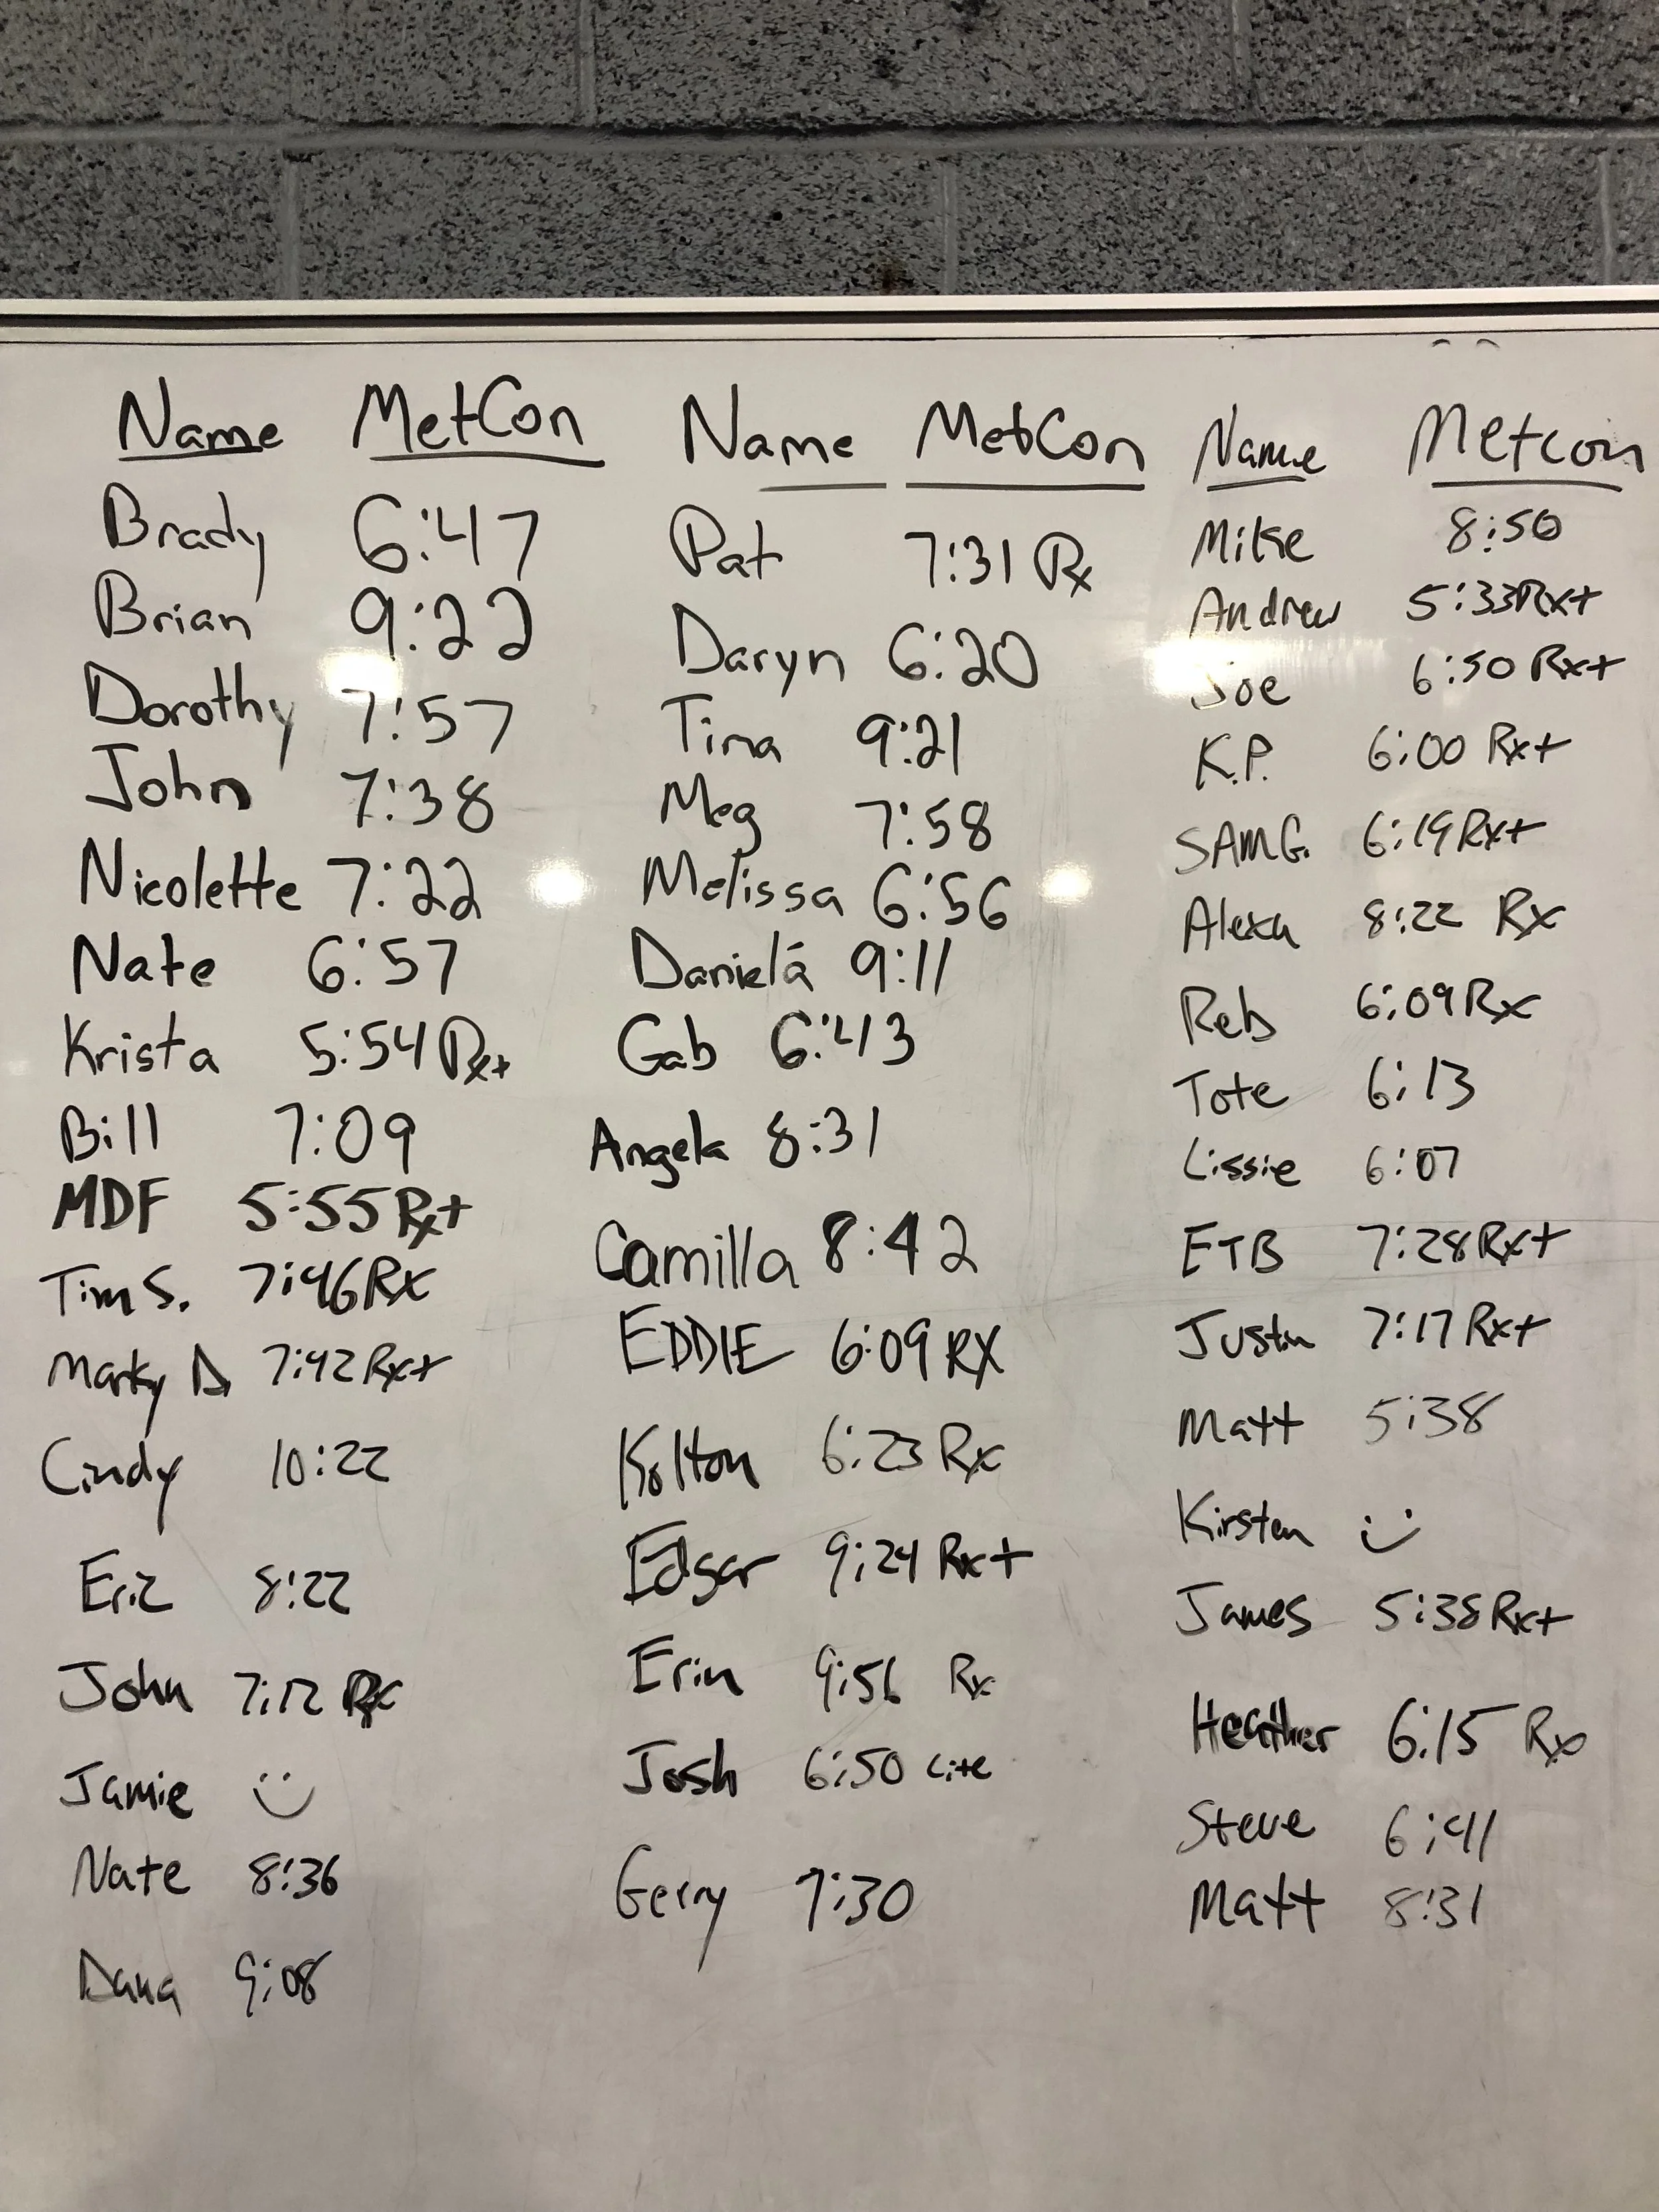 Name MetCon
Brady 6:47
Brian 9:22
Dorothy 7:57
John 7:38
Nicolette 7:22
Nate 6:57
Krista 5:54 Rx+
Bill 7:09
MDF 5:55 Rx+
Tim S. 7:46 Rx
Marky D 7:42 Rx+
Cindy 10:22
Eric 8:22
John 7:12 Rx
Jamie :)
Nate 8:36
Dana 9:08
Name MetCon
Pat 7:31 Rx
Daryn 6:20
Tina 9:21
Meg 7:58
Melissa 6:56
Daniela 9:11
Gab 6:43
Angela 8:31
Camilla 8:42
EDDIE 6:09 RX
Kolton 6:23 Rx
Edgar 9:24 Rx+
Erin 9:56 Rx
Josh 6:50 Lite
Gerry 7:30
Name Metcon
Mike 8:50
Andrew 5:33 Rx+
Joe 6:50 Rx+
K.P. 6:00 Rx+
SAM G. 6:19 Rx+
Alexa 8:22 Rx
Reb 6:09 Rx
Tote 6:13
Lissie 6:07
ETB 7:28 Rx+
Justin 7:17 Rx+
Matt 5:38
Kirsten :)
James 5:38 Rx+
Heather 6:15 Rx
Steve 6:41
Matt 8:31